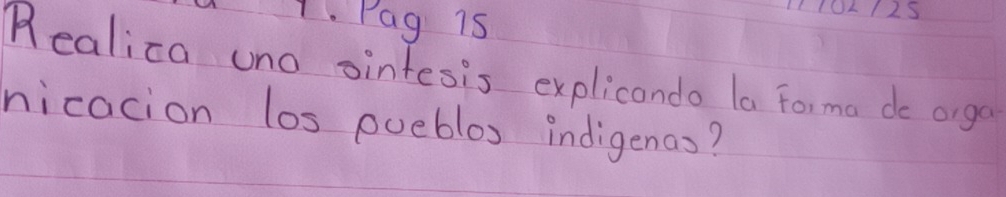 1. Pag 15
11/02/25
Realiza una sintesis explicando la forma de orga
nizacion los pueblos indigenas?